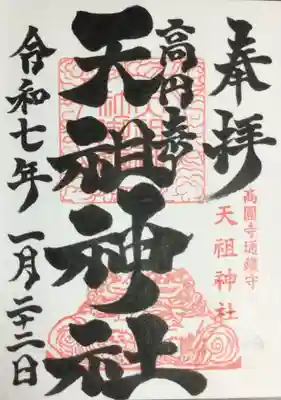 奉拝
高円寺
天祖神社
令和七年 一月二十二日
高圓寺通鎮守
天祖神社